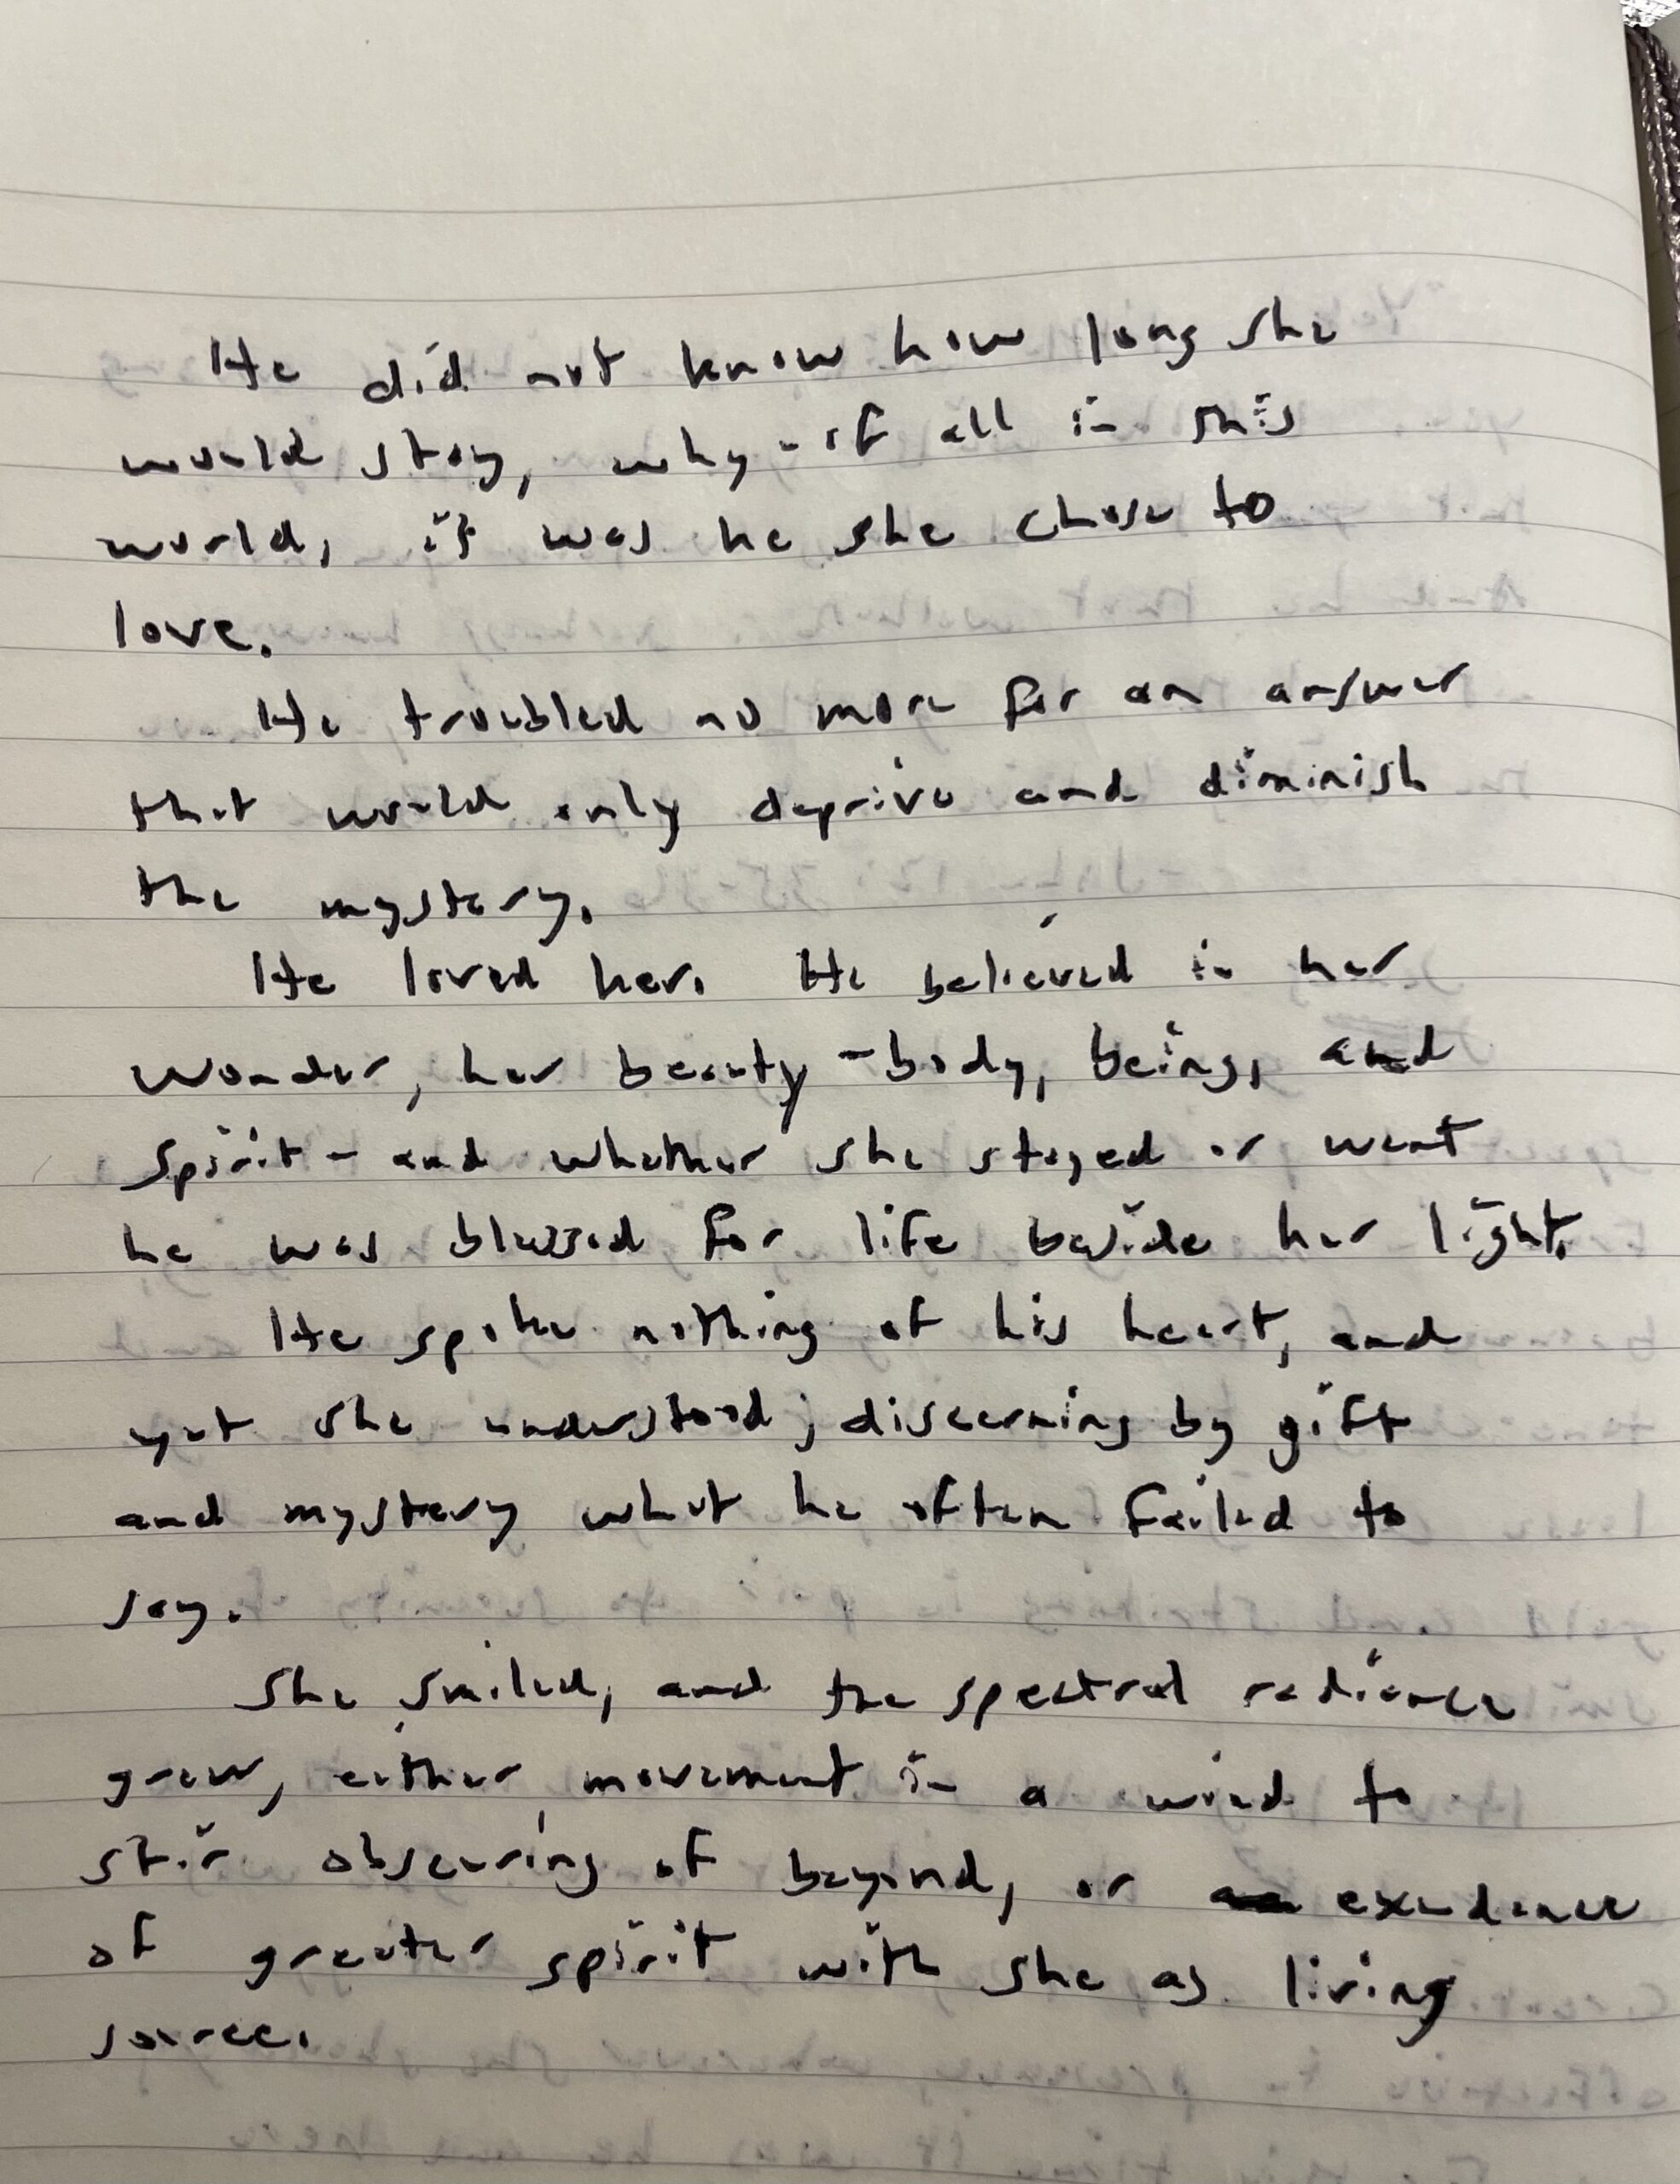 He did not know how long she
would stay, why - of all in this
world, it was he she chose to
love.
He troubled no more for an answer
that would only deprive and diminish
the mystery.
He loved her. He believed in her
wonder, her beauty - body, being, and
spirit - and whether she stayed or went
he was blessed for life beside her light.
He spoke nothing of his heart, and
yet she understood; discerning by gift
and mystery what he often failed to
say.
She smiled, and the spectral radiance
grew, either movement in a wind to
stir obscuring of beyond, or exudence
of greater spirit with she as living
source.